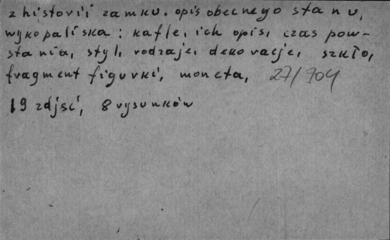 z historii zamku. opis obecnego stanu,
wykopaliska: kafle, ich opis, czas pow-
stania, styl, rodzaje dekoracje, szkło,
fragment figurki, moneta, 27/704
19 zdjęć, 8 rysunków